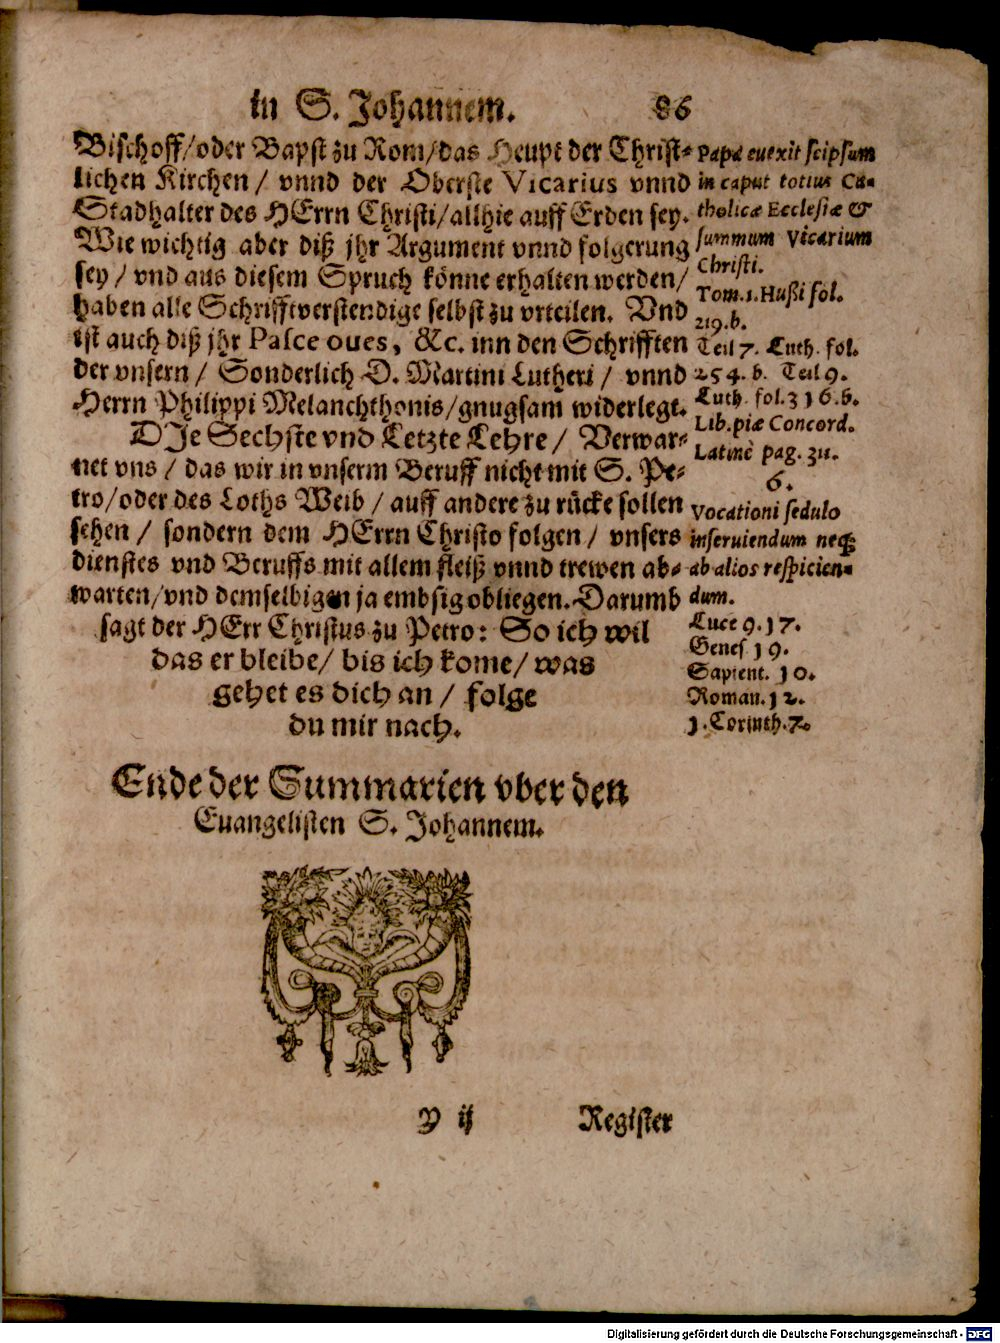 in S. Johannem. 86
Bischoff/oder Bapst zu Rom/das Heupt der Christ-
lichen Kirchen / vnnd der Oberste Vicarius vnnd
Stadhalter des HErrn Christi/allhie auff Erden sey.
Wie wichtig aber diß jhr Argument vnnd folgerung
sey / vnd aus diesem Spruch könne erhalten werden/
haben alle Schrifftverstendige selbst zu vrteilen. Vnd
ist auch diß jhr Pasce oues, &c. inn den Schrifften
der vnsern / Sonderlich D. Martini Lutheri / vnnd
Herrn Philippi Melanchthonis/gnugsam widerlegt.
DJe Sechste vnd Letzte Lehre / Verwar-
net vns / das wir in vnserm Beruff nicht mit S. Pe-
tro/oder des Loths Weib / auff andere zu rücke sollen
sehen / sondern dem HErrn Christo folgen / vnsers
dienstes vnd Beruffs mit allem fleiß vnnd trewen ab-
warten/vnd demselbigen ja embsig obliegen. Darumb
sagt der HErr Christus zu Petro: So ich wil
das er bleibe/ bis ich kome/ was
gehet es dich an / folge
du mir nach.
Papa euexit seipsum
in caput totius Ca-
tholicæ Ecclesiæ &
summum Vicarium
Christi.
Tom.1.Hußi fol.
219.b.
Teil 7. Luth. fol.
254. b. Teil 9.
Luth. fol.316.b.
Lib.piæ Concord.
Latinè pag. 311.
6.
Vocationi sedulo
inseruiendum neq;
ab alios respicien-
dum.
Luce 9.17.
Genes 19.
Sapient. 10.
Roman.12.
1.Corinth.7.
Ende der Summarien vber den
Euangelisten S. Johannem.
Y ij Register
Digitalisierung gefördert durch die Deutsche Forschungsgemeinschaft - DFG